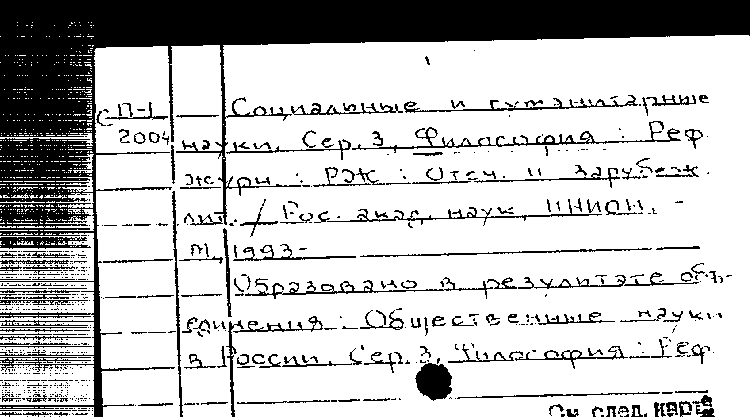 С П-1 Социальные и гуманитарные
2004 науки. Сер. 3, Философия : Реф.
журн. : РЖ : Отеч. и зарубеж.
лит. / Рос. акад. наук, ИНИОН. -
М., 1993-
Образовано в результате объ-
единения: Общественные науки
в России. Сер. 3, Философия : Реф.
См. след. карт